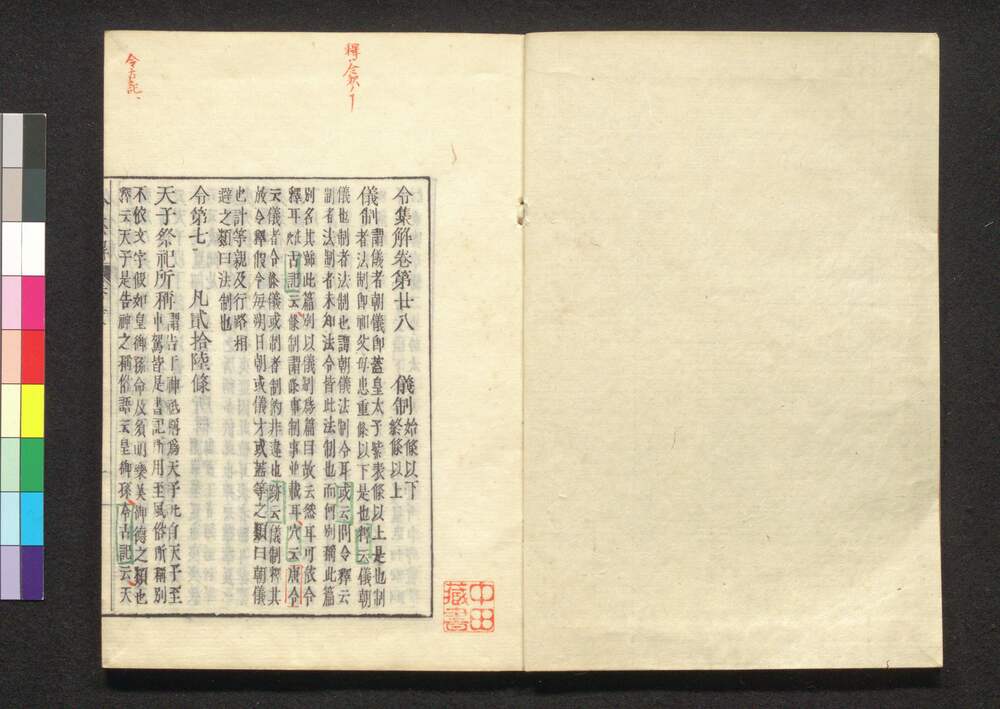 令集解卷第廿八　儀制 始條以下 終條以上
儀制 謂儀者朝儀卽蓋皇太子紫表條以上是也制
者法制卽祖父母患重條以下是也釋云儀朝
儀也制者法制也謂朝儀法制令耳或云問令釋云
制者法制者未知法令皆此法制也而何別稱此篇
別名其
此篇別以儀制爲篇目故云然耳可依令
釋耳 古記云條制謂條事制事並載耳穴云唐令
云儀者令條儀或制者制約非違也跡云儀制釋其
放令釋假令每朔日朝或儀才或蓋等之類曰朝儀
也計等親及行路相
避之類曰法制也
令第七　凡貳拾陸條
天子祭祀所稱 謂告于神祇稱爲天子凡自天子至
車駕皆是書記所用至風俗所稱別
不依文字假如皇御孫命及須明樂美御德之類也
釋云天子是告神之稱俗語云皇御孫令古記云天
令古記
中田
藏書